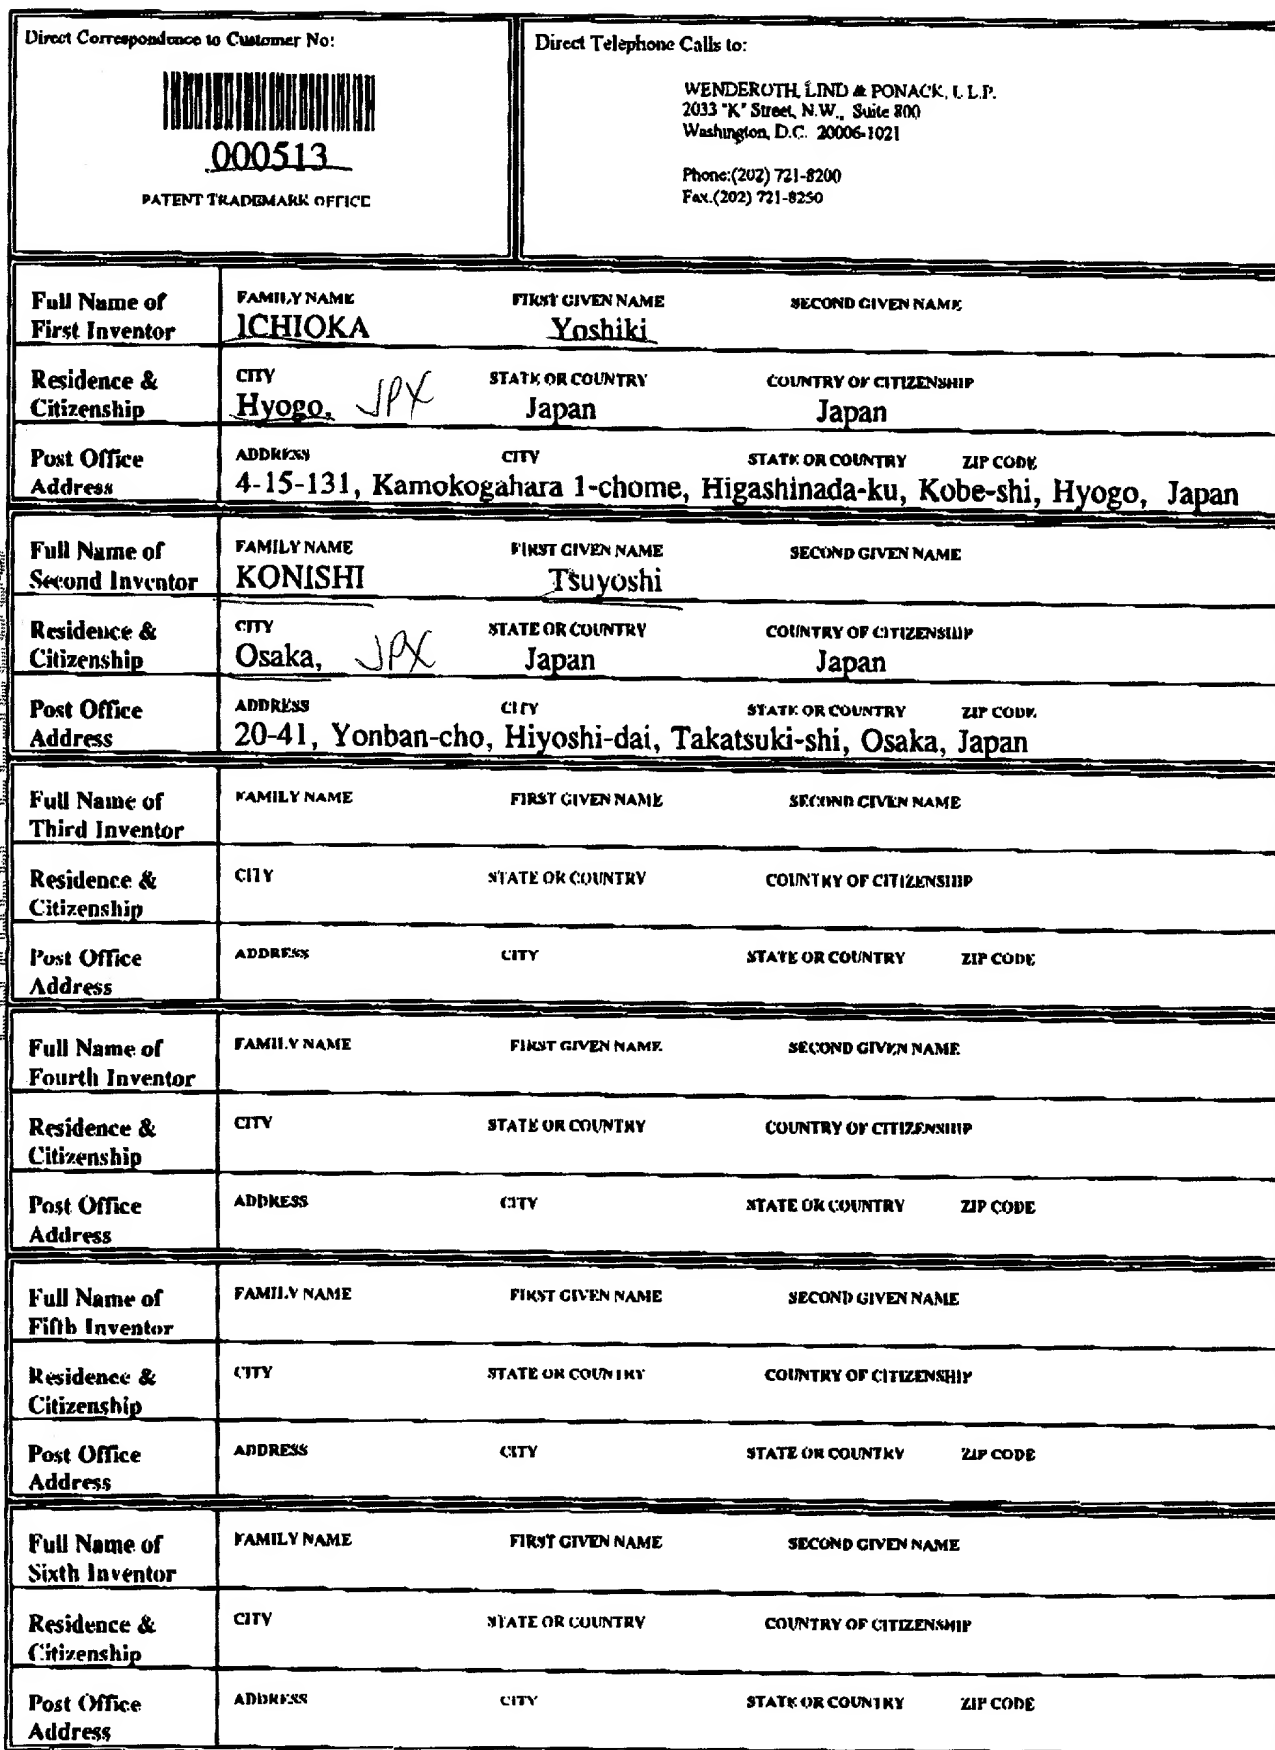 Direct Correspondence to Customer No:
000513
PATENT TRADEMARK OFFICE
Direct Telephone Calls to:
WENDEROTH, LIND & PONACK, L.L.P.
2033 "K" Street, N.W., Suite 800
Washington, D.C. 20006-1021
Phone:(202) 721-8200
Fax.(202) 721-8250
Full Name of First Inventor
FAMILY NAME FIRST GIVEN NAME SECOND GIVEN NAME
ICHIOKA Yoshiki
Residence & Citizenship
CITY STATE OR COUNTRY COUNTRY OF CITIZENSHIP
Hyogo, JPX Japan Japan
Post Office Address
ADDRESS CITY STATE OR COUNTRY ZIP CODE
4-15-131, Kamokogahara 1-chome, Higashinada-ku, Kobe-shi, Hyogo, Japan
Full Name of Second Inventor
FAMILY NAME FIRST GIVEN NAME SECOND GIVEN NAME
KONISHI Tsuyoshi
Residence & Citizenship
CITY STATE OR COUNTRY COUNTRY OF CITIZENSHIP
Osaka, JPX Japan Japan
Post Office Address
ADDRESS CITY STATE OR COUNTRY ZIP CODE
20-41, Yonban-cho, Hiyoshi-dai, Takatsuki-shi, Osaka, Japan
Full Name of Third Inventor
FAMILY NAME FIRST GIVEN NAME SECOND GIVEN NAME
Residence & Citizenship
CITY STATE OR COUNTRY COUNTRY OF CITIZENSHIP
Post Office Address
ADDRESS CITY STATE OR COUNTRY ZIP CODE
Full Name of Fourth Inventor
FAMILY NAME FIRST GIVEN NAME SECOND GIVEN NAME
Residence & Citizenship
CITY STATE OR COUNTRY COUNTRY OF CITIZENSHIP
Post Office Address
ADDRESS CITY STATE OR COUNTRY ZIP CODE
Full Name of Fifth Inventor
FAMILY NAME FIRST GIVEN NAME SECOND GIVEN NAME
Residence & Citizenship
CITY STATE OR COUNTRY COUNTRY OF CITIZENSHIP
Post Office Address
ADDRESS CITY STATE OR COUNTRY ZIP CODE
Full Name of Sixth Inventor
FAMILY NAME FIRST GIVEN NAME SECOND GIVEN NAME
Residence & Citizenship
CITY STATE OR COUNTRY COUNTRY OF CITIZENSHIP
Post Office Address
ADDRESS CITY STATE OR COUNTRY ZIP CODE